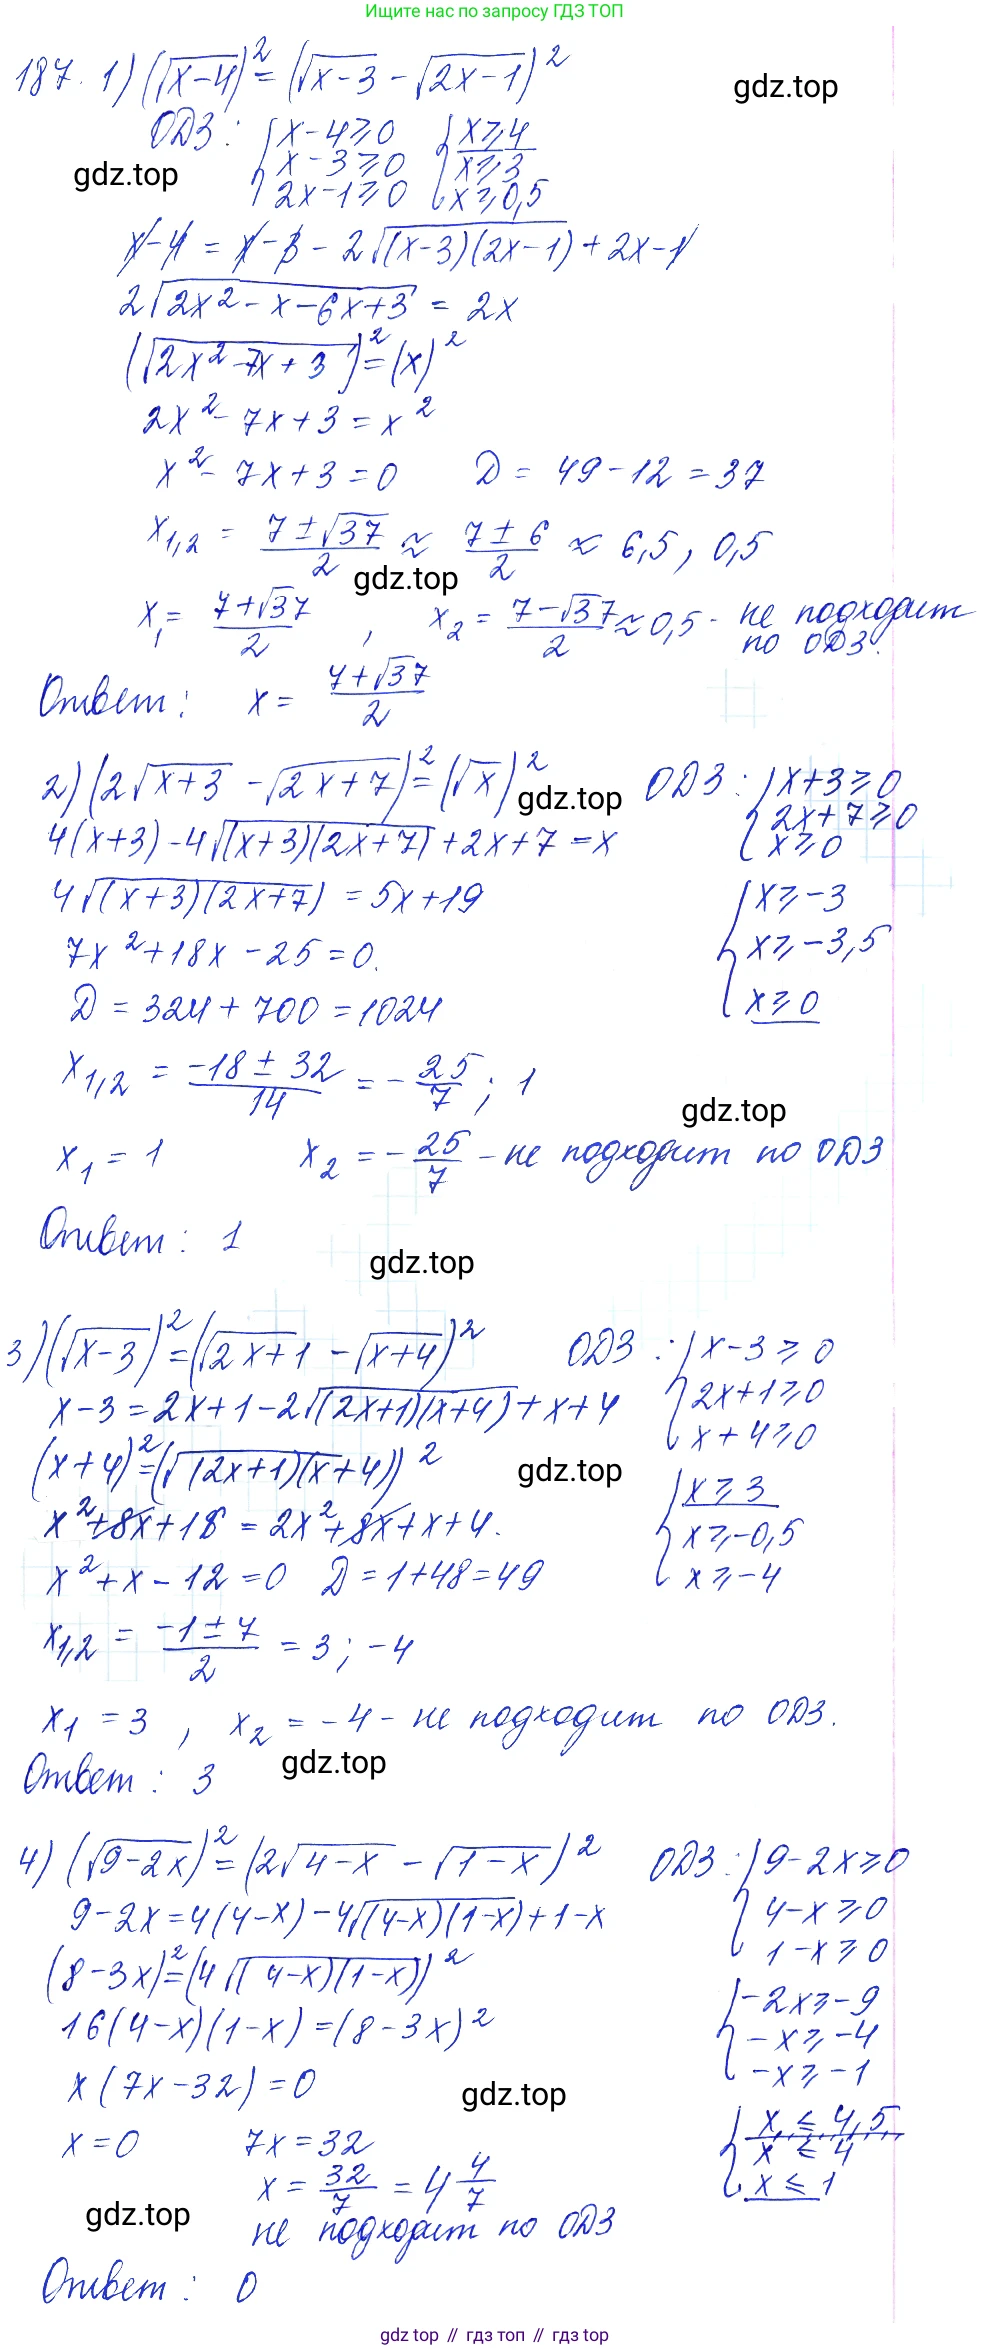 Ищите нас по запросу ГДЗ ТОП
187. 1) (√(x-4))² = (√(x-3) - √(2x-1))²
gdz.top
ОДЗ: { x-4⩾0 { x⩾4
x-3⩾0 x⩾3
2x-1⩾0 x⩾0,5
gdz.top
x-4 = x-3 - 2√((x-3)(2x-1)) + 2x-1
2√(2x²-x-6x+3) = 2x
(√(2x²-7x+3))² = (x)²
2x²-7x+3 = x²
x²-7x+3 = 0 D = 49-12 = 37
x₁,₂ = (7±√37)/2 ≈ (7±6)/2 ≈ 6,5, 0,5
gdz.top
x₁ = (7+√37)/2, x₂ = (7-√37)/2 ≈ 0,5 - не подходит
по ОДЗ.
Ответ: x = (7+√37)/2
2) (2√(x+3) - √(2x+7))² = (√x)² ОДЗ: { x+3⩾0
gdz.top
2x+7⩾0
4(x+3) - 4√((x+3)(2x+7)) + 2x+7 = x x⩾0
4√((x+3)(2x+7)) = 5x+19 { x⩾-3
7x²+18x-25 = 0. x⩾-3,5
D = 324+700 = 1024 x⩾0
x₁,₂ = (-18±32)/14 = -25/7; 1
gdz.top
x₁ = 1 x₂ = -25/7 - не подходит по ОДЗ
Ответ: 1
gdz.top
3) (√(x-3))² = (√(2x+1) - √(x+4))² ОДЗ: { x-3⩾0
x-3 = 2x+1-2√((2x+1)(x+4)) + x+4 2x+1⩾0
x+4⩾0
(x+4)² = (√((2x+1)(x+4)))²
gdz.top
{ x⩾3
x²+8x+16 = 2x²+8x+x+4. x⩾-0,5
x²+x-12 = 0 D = 1+48 = 49 x⩾-4
x₁,₂ = (-1±7)/2 = 3; -4
x₁ = 3, x₂ = -4 - не подходит по ОДЗ.
gdz.top
Ответ: 3
4) (√(9-2x))² = (2√(4-x) - √(1-x))² ОДЗ: { 9-2x⩾0
9-2x = 4(4-x) - 4√((4-x)(1-x)) + 1-x 4-x⩾0
1-x⩾0
(8-3x)² = (4√((4-x)(1-x)))²
{ -2x⩾-9
16(4-x)(1-x) = (8-3x)² -x⩾-4
-x⩾-1
x(7x-32) = 0
gdz.top
{ x⩽4,5
x = 0 7x = 32 x⩽4
x = 32/7 = 4 4/7 x⩽1
gdz.top
не подходит по ОДЗ
Ответ: 0
gdz.top // гдз топ // gdz top